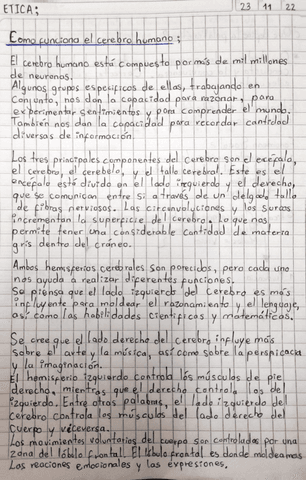 ETICA; 23 11 22
Como funciona el cerebro humano;
El cerebro humano está compuesto por más de mil millones
de neuronas.
Algunos grupos específicos de ellas, trabajando en
conjunto, nos dan la capacidad para razonar, para
experimentar sentimientos y para comprender el mundo.
También nos dan la capacidad para recordar cantidad
diversas de información.
Los tres principales componentes del cerebro son el excéfala,
el cerebro, el cerebelo, y el talle cerebral. Este es el
encéfalo está divido en el lado izquierdo y el derecho,
que se comunican entre sí a través de un delgado tallo
de fibras nerviosas. Las circunvoluciones y los surcos
incrementan la superficie del cerebro, lo que nos
permite tener una considerable cantidad de materia
gris dentro del cráneo.
Ambos hemisferios cerebrales son parecidos, pero cada uno
nos ayuda a realizar diferentes funciones.
Se piensa que el lado izquierdo del Cerebro es más
influyente para moldear el razonamiento y el lenguaje,
así como las habilidades científicas y matemáticas.
Se cree que el lado derecho del cerebro influye más
sobre el arte y la música, así como sobre la perspicacia
y la imaginación.
El hemisferio izquierdo controla los músculos de pie
derecho, mientras que el derecho controla los del
izquierdo. Entre otras palabras, el lado izquierdo del
cerebro controla los músculos del lado derecho del
cuerpo y viceversa.
Los movimientos voluntarios del cuerpo son controlados por una
zona del lóbulo frontal. El lóbulo frontal es donde moldeamos
Las reacciones emocionales y las expresiones.